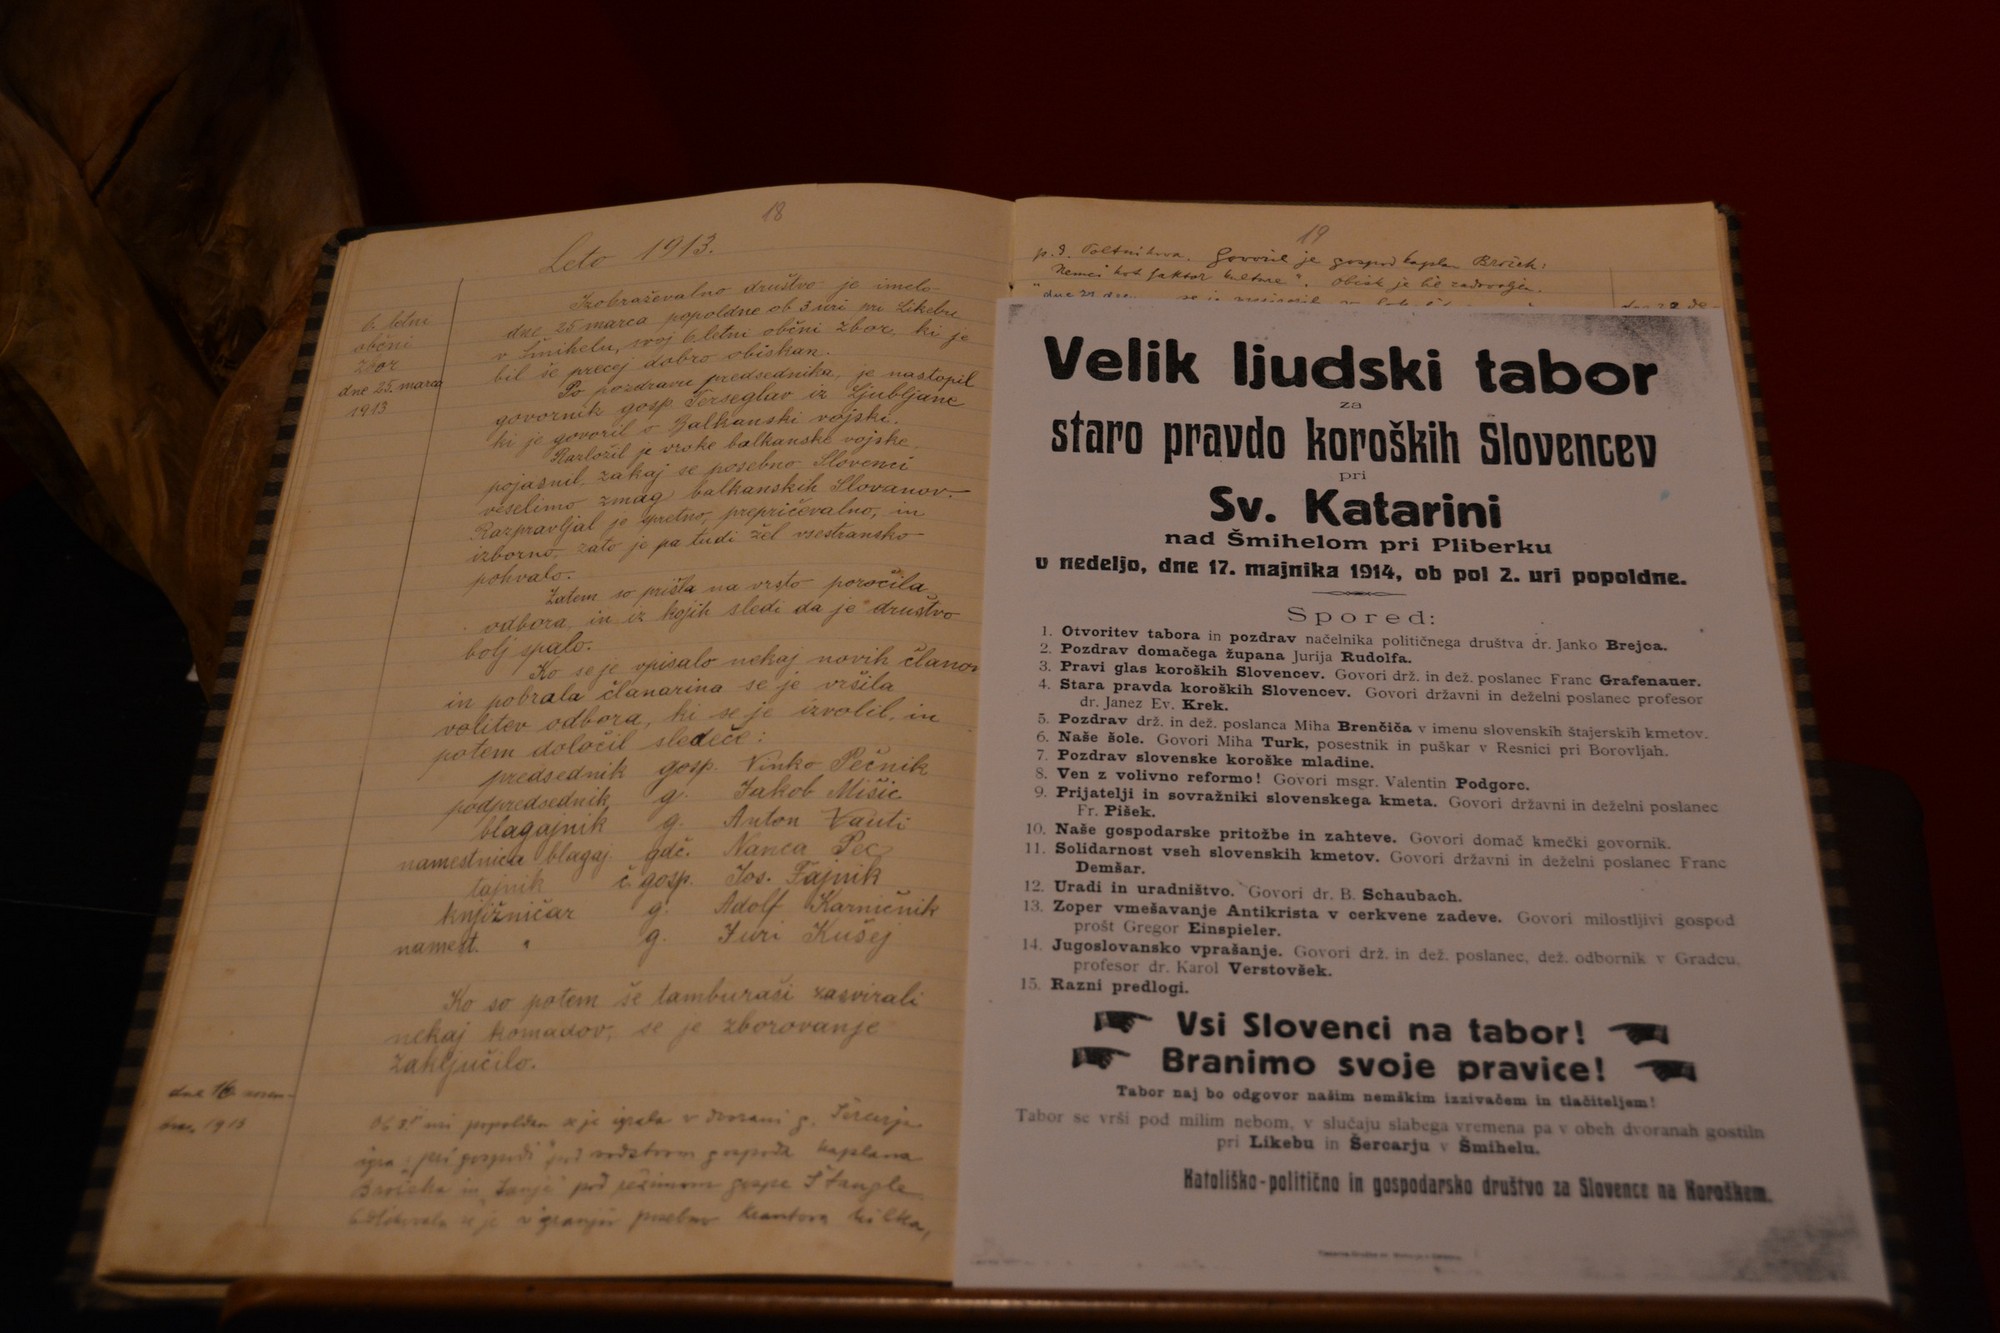 18
Leto 1913.
6. letni
občni
zbor
dne 25. marca
1913
Izobraževalno društvo je imelo
dne 25 marca popoldne ob 3 uri pri Likebu
v Šmihelu, svoj 6 letni občni zbor, ki je
bil še precej dobro obiskan.
Po pozdravu predsednika, je nastopil
govornik gosp. Terseglav iz Ljubljane
ki je govoril o Balkanski vojski.
Razložil je vzroke balkanske vojske,
pojasnil, zakaj se posebno Slovenci
veselimo zmag balkanskih Slovanov.
Razpravljal je spretno, prepričevalno, in
izborno, zato je pa tudi žel vsestransko
pohvalo.
Zatem so prišla na vrsto poročila
odbora, in iz kojih sledi da je društvo
bolj spalo.
Ko se je vpisalo nekaj novih članov
in pobrala članarina se je vršila
volitev odbora, ki se je izvolil, in
potem določil sledeče:
predsednik gosp. Vinko Pečnik
podpredsednik g. Jakob Mišic
blagajnik g. Anton Vauti
namestnica blagaj. gdč. Nanca Pec
tajnik č. gosp. Jos. Fajnik
knjižničar g. Adolf Karničnik
namest. " g. Juri Kušej
Ko so potem še tamburaši zasvirali
nekaj komadov, se je zborovanje
zaključilo.
dne 16 novem-
bra, 1913
popoldan se je igrala v dvorani g.
igra pod vodstvom gospoda kaplana
Brožeka in pod gospe Štangle
posebno
19
p. d. Voltnikova. Govoril je gospod kaplan Brožek:
"Nemci kot faktor kulture". Obisk je bil zadovoljen.
Velik ljudski tabor
za
staro pravdo koroških Slovencev
pri
Sv. Katarini
nad Šmihelom pri Pliberku
v nedeljo, dne 17. majnika 1914, ob pol 2. uri popoldne.
Spored:
1. Otvoritev tabora in pozdrav načelnika političnega društva dr. Janko Brejca.
2. Pozdrav domačega župana Jurija Rudolfa.
3. Pravi glas koroških Slovencev. Govori drž. in dež. poslanec Franc Grafenauer.
4. Stara pravda koroških Slovencev. Govori državni in deželni poslanec profesor
dr. Janez Ev. Krek.
5. Pozdrav drž. in dež. poslanca Miha Brenčiča v imenu slovenskih štajerskih kmetov.
6. Naše šole. Govori Miha Turk, posestnik in puškar v Resnici pri Borovljah.
7. Pozdrav slovenske koroške mladine.
8. Ven z volivno reformo! Govori msgr. Valentin Podgorc.
9. Prijatelji in sovražniki slovenskega kmeta. Govori državni in deželni poslanec
Fr. Pišek.
10. Naše gospodarske pritožbe in zahteve. Govori domač kmečki govornik.
11. Solidarnost vseh slovenskih kmetov. Govori državni in deželni poslanec Franc
Demšar.
12. Uradi in uradništvo. Govori dr. B. Schaubach.
13. Zoper vmešavanje Antikrista v cerkvene zadeve. Govori milostljivi gospod
prošt Gregor Einspieler.
14. Jugoslovansko vprašanje. Govori drž. in dež. poslanec, dež. odbornik v Gradcu,
profesor dr. Karol Verstovšek.
15. Razni predlogi.
Vsi Slovenci na tabor!
Branimo svoje pravice!
Tabor naj bo odgovor našim nemškim izzivačem in tlačiteljem!
Tabor se vrši pod milim nebom, v slučaju slabega vremena pa v obeh dvoranah gostiln
pri Likebu in Šercarju v Šmihelu.
Katoliško-politično in gospodarsko društvo za Slovence na Koroškem.